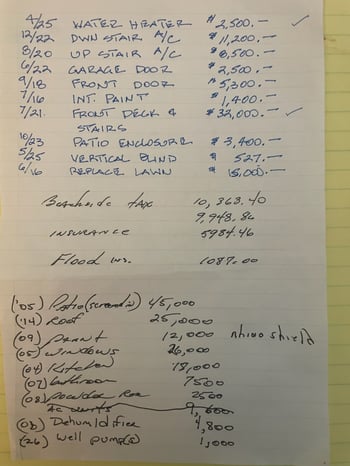 4/25 WATER HEATER $2,500.— ✓
12/22 DWN STAIR A/C $11,200.—
8/20 UP STAIR A/C $8,500.—
6/22 GARAGE DOOR $2,500.—
9/18 FRONT DOOR $5,300.—
7/16 INT. PAINT $1,400.—
7/21. FRONT DECK & $32,000.— ✓
STAIRS
10/23 PATIO ENCLOSURE $3,400.—
5/25 VERTICAL BLIND $527.—
6/16 REPLACE LAWN $15,000.—
Beachside tax 10,363.40
9,948.86
INSURANCE 5984.46
Flood ins. 1087.00
('05) Patio (screened in) 45,000
('14) Roof 25,000
(09) paint 12,000 rhino shield
(05) windows 26,000
(04) Kitchen 18,000
(07) bathroom 7500
(08) powder Rm 2500
AC units 9,600
(08) Dehumidifier 4,800
(26) well pump(s) 1,000